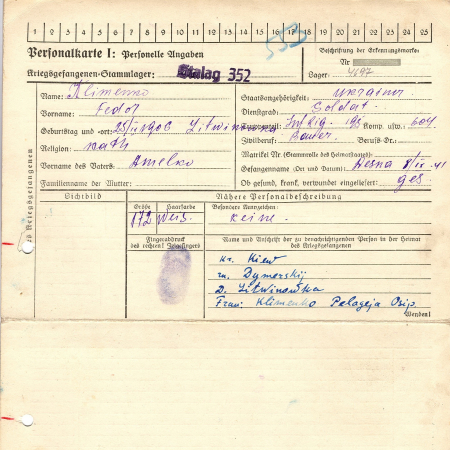 1 2 3 4 5 6 7 8 9 10 11 12 13 14 15 16 17 18 19 20 21 22 23 24 25
Personalkarte I: Personelle Angaben
Kriegsgefangenen-Stammlager: Stalag 352
553
Beschriftung der Erkennungsmarke
Nr.
Lager: 4697
Des Kriegsgefangenen
Name: Klimenko
Vorname: Fedor
Geburtstag und -ort: 1906 Litwinowka
Religion: kath
Vorname des Vaters: Amelko
Familienname der Mutter:
Staatsangehörigkeit: Ukrainer
Dienstgrad: Soldat
Truppenteil: Komp. usw.: 604
Zivilberuf: Bauer Berufs-Gr.:
Matrikel Nr. (Stammrolle des Heimatstaates):
Gefangennahme (Ort und Datum): 41
Ob gesund, krank, verwundet eingeliefert: ges.
Lichtbild
Nähere Personalbeschreibung
Größe Haarfarbe Besondere Kennzeichen:
172 keine
Fingerabdruck des rechten Zeigefingers
Name und Anschrift der zu benachrichtigenden Person in der Heimat des Kriegsgefangenen
Kr. Kiew
Dymerskij
D. Litwinowka
Frau: Klimenko Pelageja Osip.
Wenden!